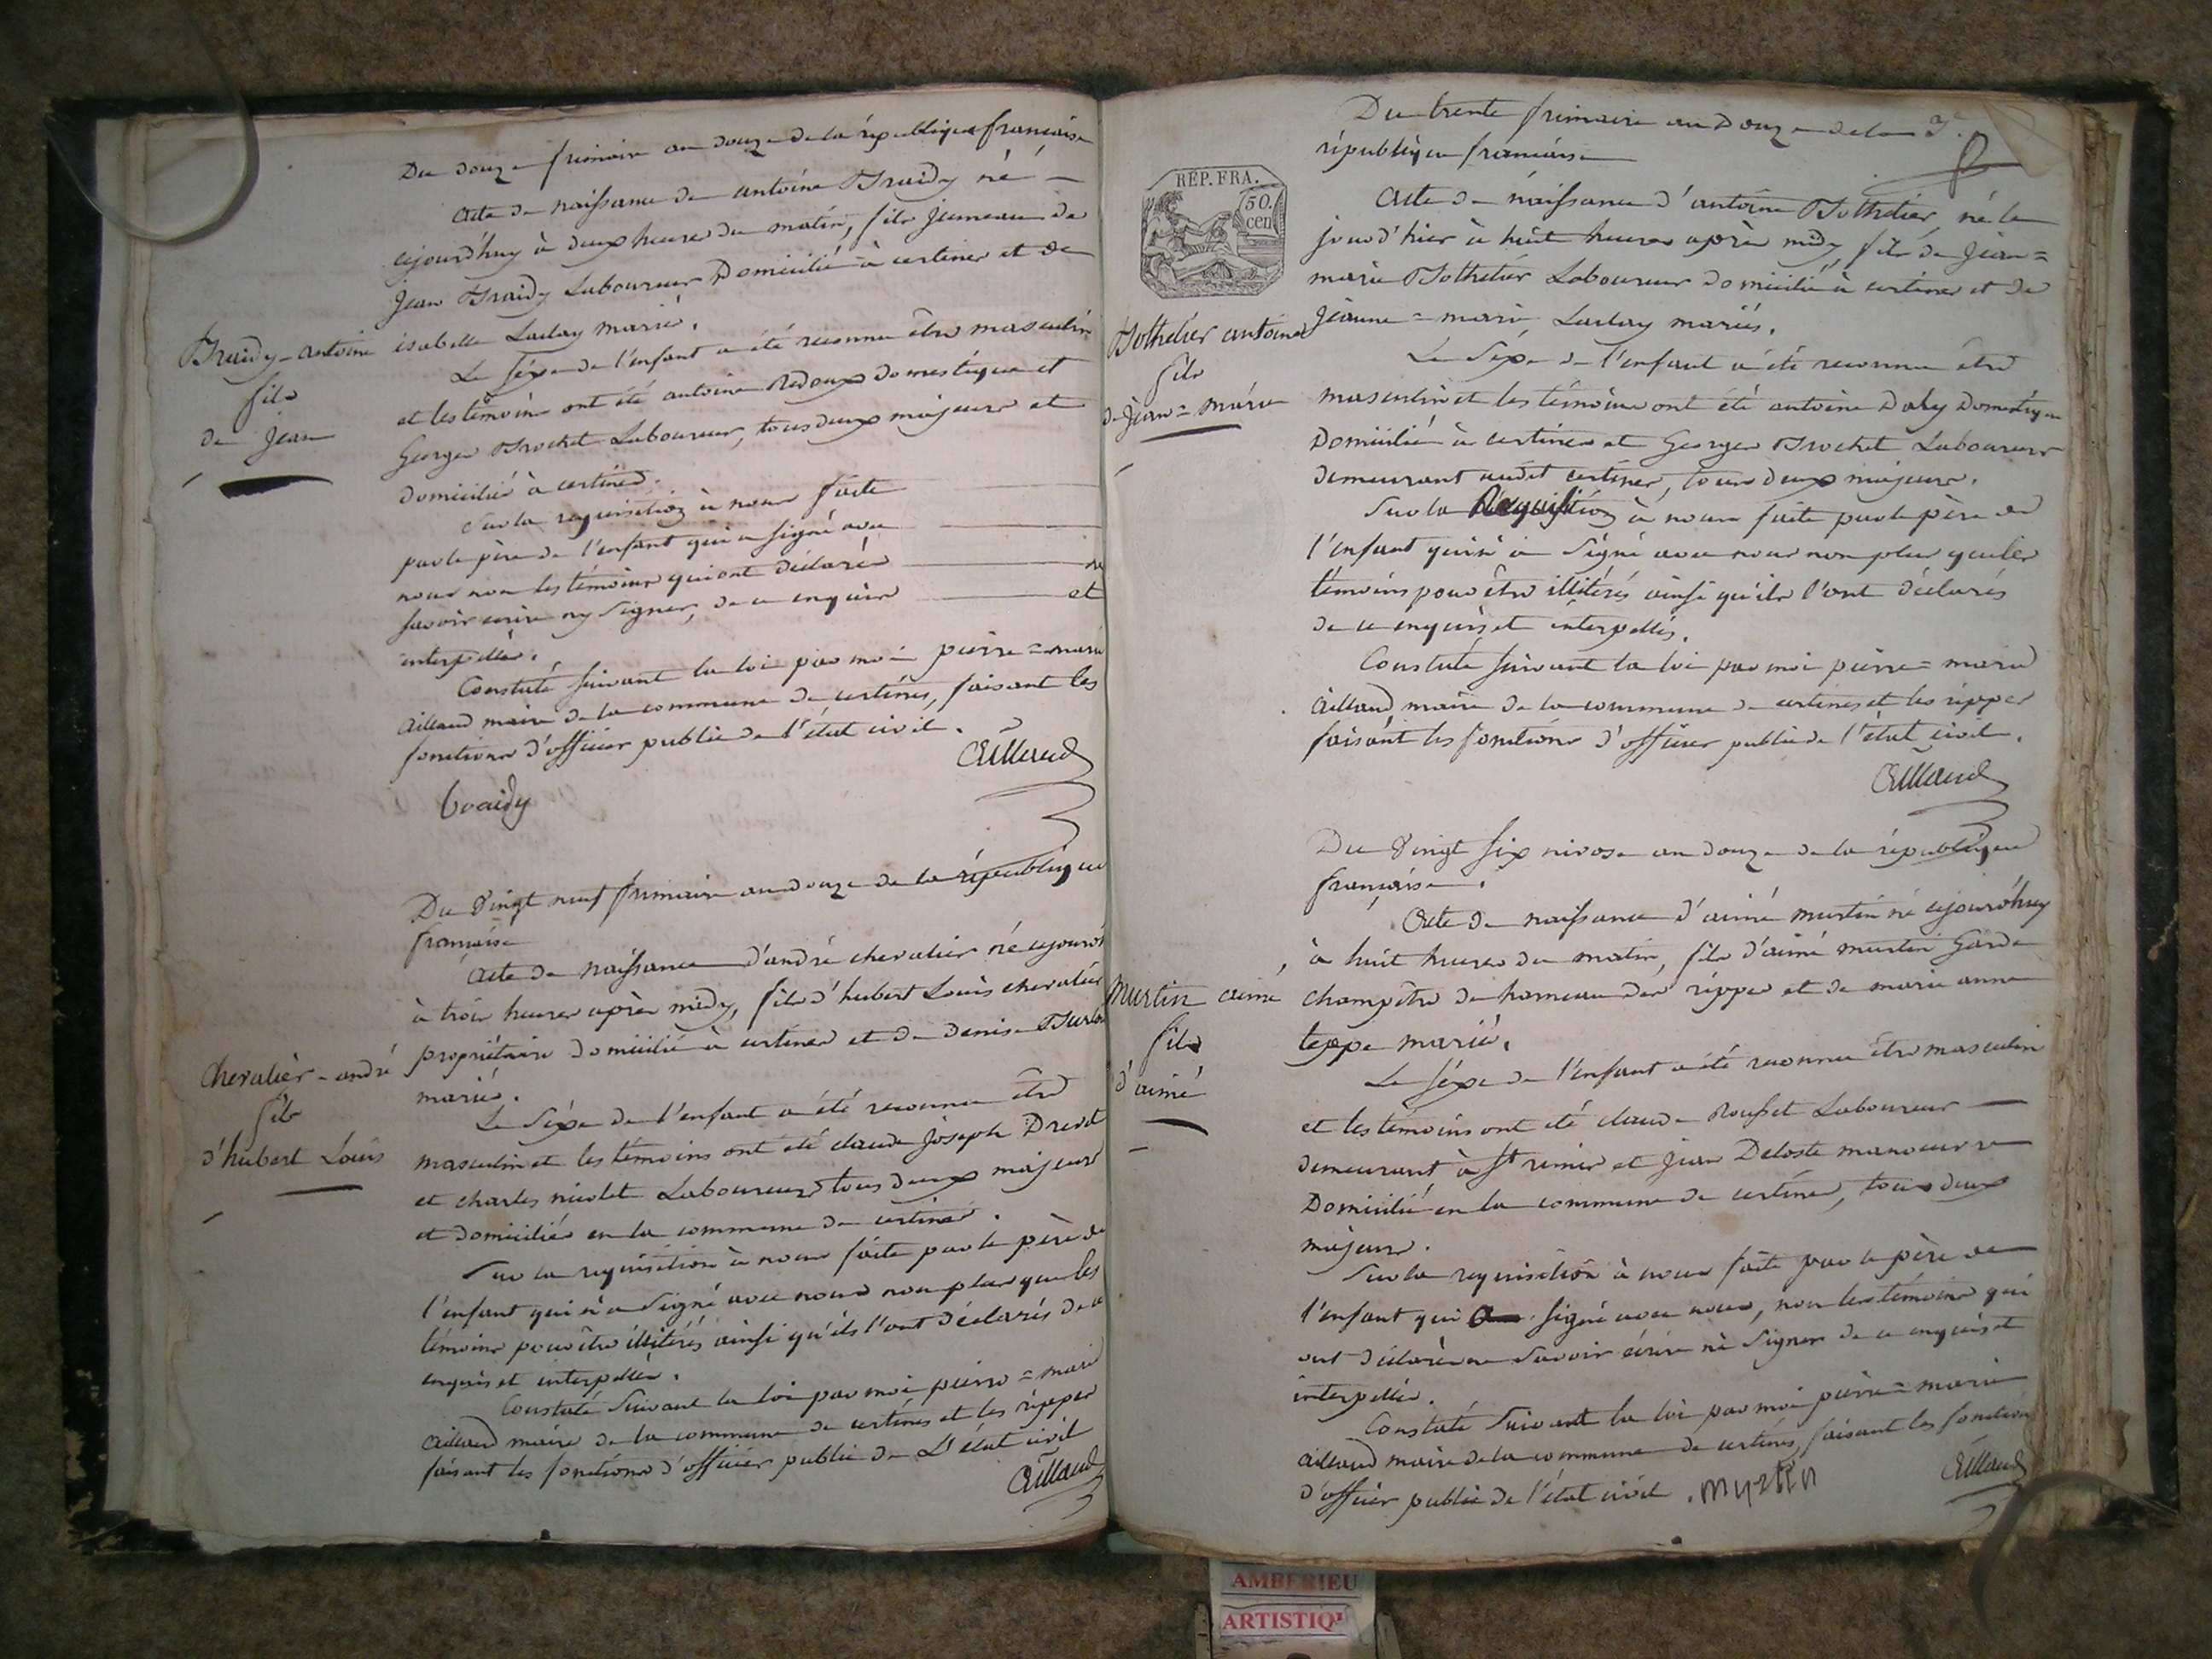 Du douze frimaire an douze de la république française
Acte de naissance de antoine Braidy né
cejourd'huy à deux heures du matin, fils jumeau de
Jean Braidy Laboureur Domicilié à certines et de
isabelle Laclay mariés.
Le sèxe de l'enfant a été reconnu être masculin
et les témoins ont été antoine Redoux domestique et
George Brochet Laboureur, tous deux majeurs et
domiciliés à certines.
Sur la requisition à nous faite
par le père de l'enfant qui a signé avec
nous non les témoins qui ont déclarés ne
savoir écrire ny signer, de ce enquis et
interpellés.
Constaté suivant la loi par moi pierre=marie
aillaud maire de la commune de certines, faisant les
fonctions d'officier public de l'état civil.
Aillaud
braidy
Braidy-antoine
fils
de Jean
Du Vingt neuf frimaire an douze de la république
française
Acte de naissance d'andré chevalier né cejourd'h
à trois heures après midy, fils d'hubert Louis chevalier
propriétaire domicilié à certines et de denise
mariés.
Le Sèxe de l'enfant a été reconnu être
masculin et les témoins ont été claude Joseph
et charles nicolet Laboureurs tous deux majeurs
et domiciliés en la commune de certines.
Sur la requisition à nous faite par le père de
l'enfant qui n'a signé avec nous non plus que les
témoins pour être illitérés ainsi qu'ils l'ont déclarés de ce
enquis et interpellés.
Constaté Suivant la loi par moi pierre=marie
aillaud maire de la commune de certines et les rippes
faisant les fonctions d'officier public de L'état civil
Aillaud
Chevalier-andré
fils
d'hubert Louis
Du trente frimaire an Douze de la
république française
REP. FRA.
50.
cen
Acte de naissance d'antoine Bothelier, né le
jour d'hier à huit heures après midy, fils de Jean=
marie Bothelier Laboureur domicilié à certines et de
jeanne=marie Laclay mariés.
Le Sèxe de l'enfant a été reconnu être
masculin et les témoins ont été antoine Domestique
Domicilié à certines et George Brochet Laboureur
demeurant audit certines, tous deux majeurs.
Sur la Requisition à nous faite par le père de
l'enfant qui n'a Signé avec nous non plus que les
témoins pour être illitérés ainsi qu'ils l'ont déclarés
de ce enquis et interpellés.
Constaté suivant la loi par moi pierre=marie
aillaud, maire de la commune de certines et les rippes
faisant les fonctions d'officier public de l'état civil.
Aillaud
Bothelier antoine
fils
de jean=marie
Du Vingt six nivose an douze de la république
française.
Acte de naissance d'aimé martin né cejourd'huy
à huit heures du matin, fils d'aimé martin Garde
champêtre du hameau des rippes et de marie anne
teppe mariés.
Le sèxe de l'enfant a été reconnu être masculin
et les témoins ont été claude Rousset Laboureur
demeurant à St remier et Jean Deloste manoeuvre
Domicilié en la commune de certines, tous deux
majeurs.
Sur la requisition à nous faite par le père de
l'enfant qui a signé avec nous, non les témoins qui
ont déclaré ne Savoir écrire ni Signer de ce enquis et
interpellés.
Constaté Suivant la loi par moi pierre=marie
aillaud maire de la commune de certines, faisant les fonctions
d'officier public de l'état civil.
Martin
Aillaud
Martin aimé
fils
d'aimé
AMBERIEU
ARTISTIQ